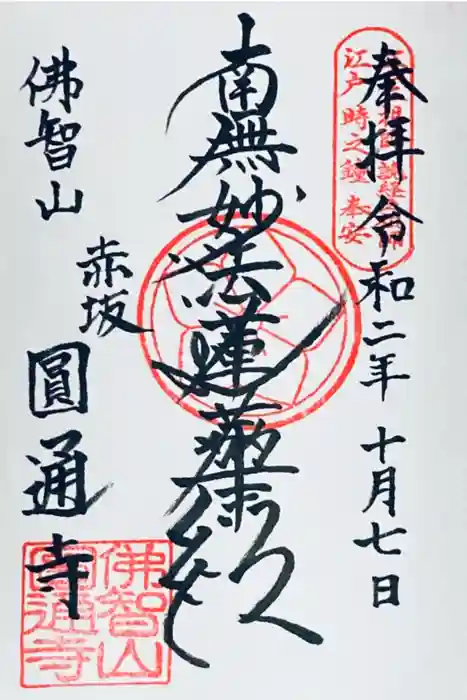 奉拝 令和二年 十月七日
江戸 時之鐘 奉安
南無妙法蓮華経
佛智山
赤坂
圓通寺
佛智山
圓通寺